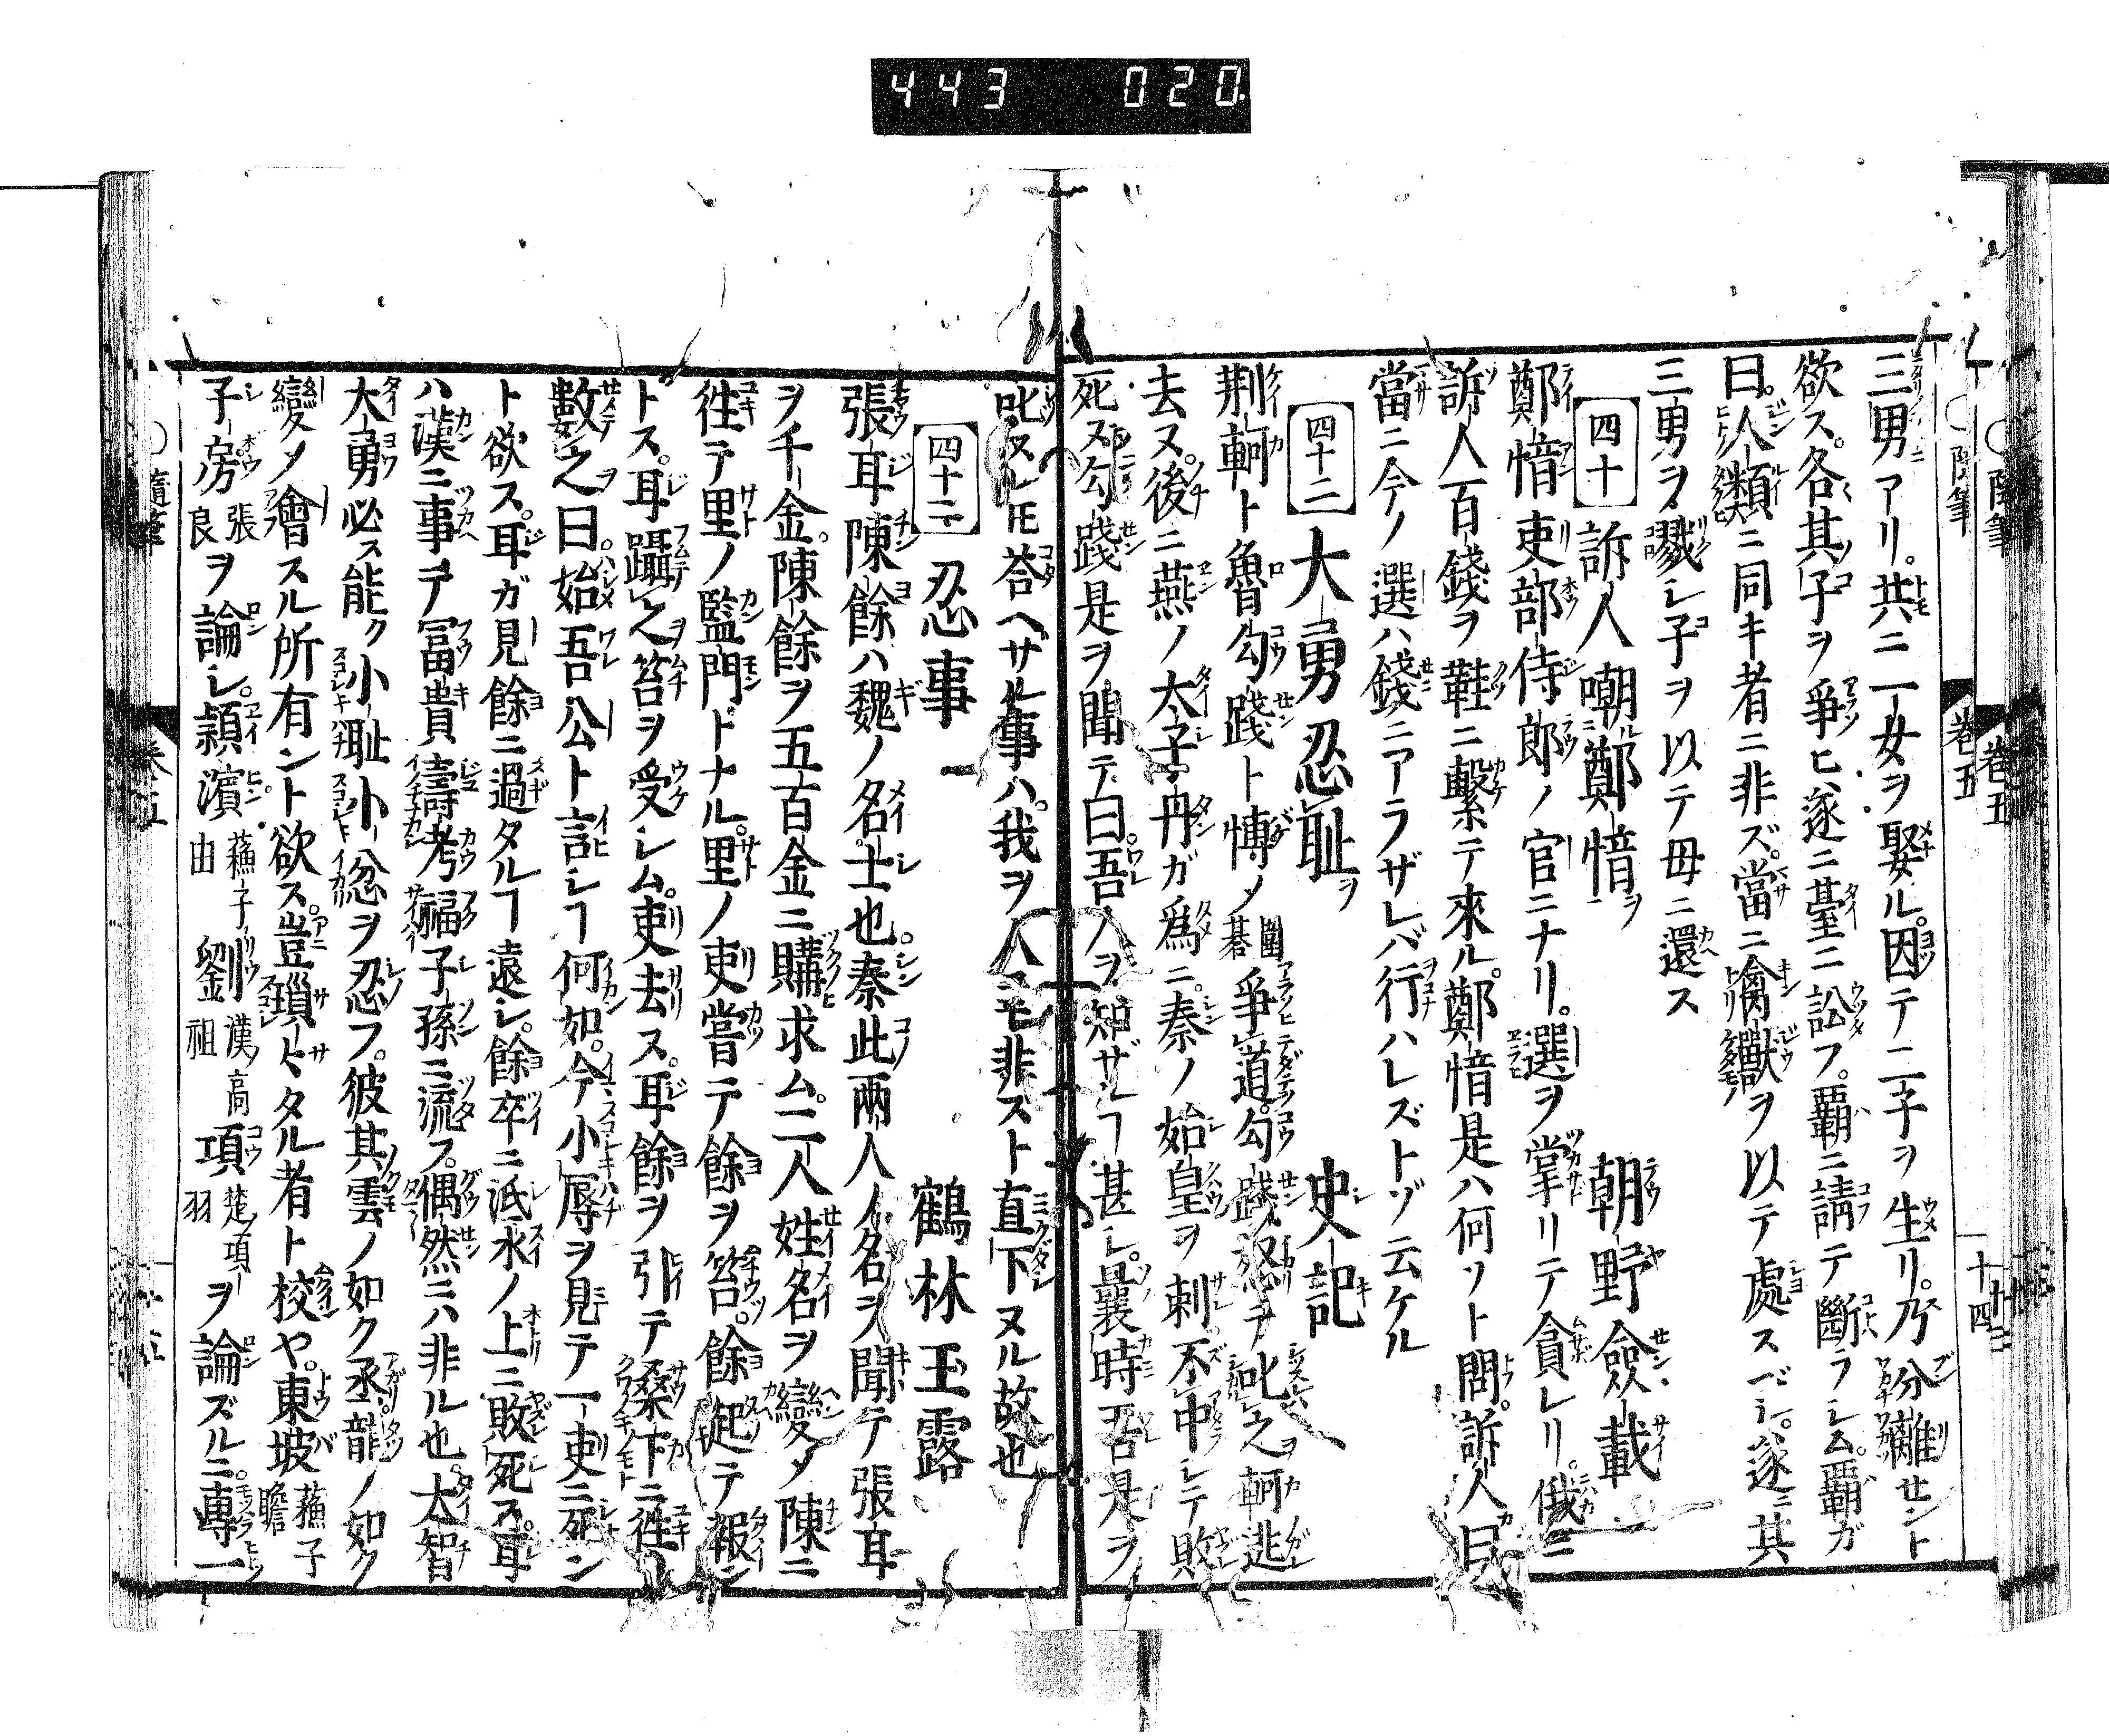 443 020
三男アリ。共ニ一女ヲ娶ル。因テ二子ヲ生リ。乃分離セント
欲ス。各其子ヲ爭ヒ遂ニ臺ニ訟フ。覇ニ請テ斷ラレム。覇ガ
曰。人類ニ同キ者ニ非ズ。當ニ禽獸ヲ以テ處スベシ。遂ニ其
三男ヲ戮シ子ヲ以テ母ニ還ス
四十 訴人嘲鄭愔ヲ 朝野僉載
鄭愔吏部侍郎ノ官ニナリ。選ヲ掌リテ貪レリ。俄ニ
訴人百錢ヲ鞋ニ繫テ來ル。鄭愔是ハ何ソト問。訴人曰
當ニ今ノ選ハ錢ニアラザレバ行ハレズトゾ云ケル
四十二 大勇忍耻ヲ 史記
荆軻ト魯勾踐ト博メ圍碁爭道。勾踐怒テ叱之軻逃
去ヌ。後ニ燕ノ太子丹ガ爲ニ秦ノ始皇ヲ刺。不中シテ敗
死ス勾踐是ヲ聞テ曰。吾人ヲ知ザルヿ甚シ。曩時吾是ヲ
叱ヌレ𪜈荅ヘザル事ハ。我ヲ人ニモ非スト直下ヌル故也
四十三 忍事 鶴林玉露
張耳陳餘ハ魏ノ名士也。秦此兩人ノ名ヲ聞テ張耳
ヲ千金。陳餘ヲ五百金ニ購求ム。二人姓名ヲ變メ陳ニ
徃テ里ノ監門トナル。里ノ吏嘗テ餘ヲ笞。餘起テ報ン
トス。耳躡之笞ヲ受シム。吏去ヌ。耳餘ヲ引テ桑下ニ徃
數之曰。始吾公ト言シヿ何如。今小辱ヲ見テ一吏ニ死ン
ト欲ス。耳ガ見餘ニ過タルヿ遠シ。餘卒ニ泜水ノ上ニ敗死ス。耳
ハ漢ニ事テ冨貴壽考福子孫ニ流フ。偶然ニハ非ル也。大智
大勇必ス能ク小耻小忿ヲ忍フ。彼其雲ノ如ク丞龍ノ如ク
變メ會スル所有ント欲ス。豈瑣々タル者ト校や。東坡蘓子瞻
子房張良ヲ論シ。潁濱蘓子由劉漢ノ高祖項楚ノ項羽ヲ論ズルニ。專一
○隨筆 卷五 十四